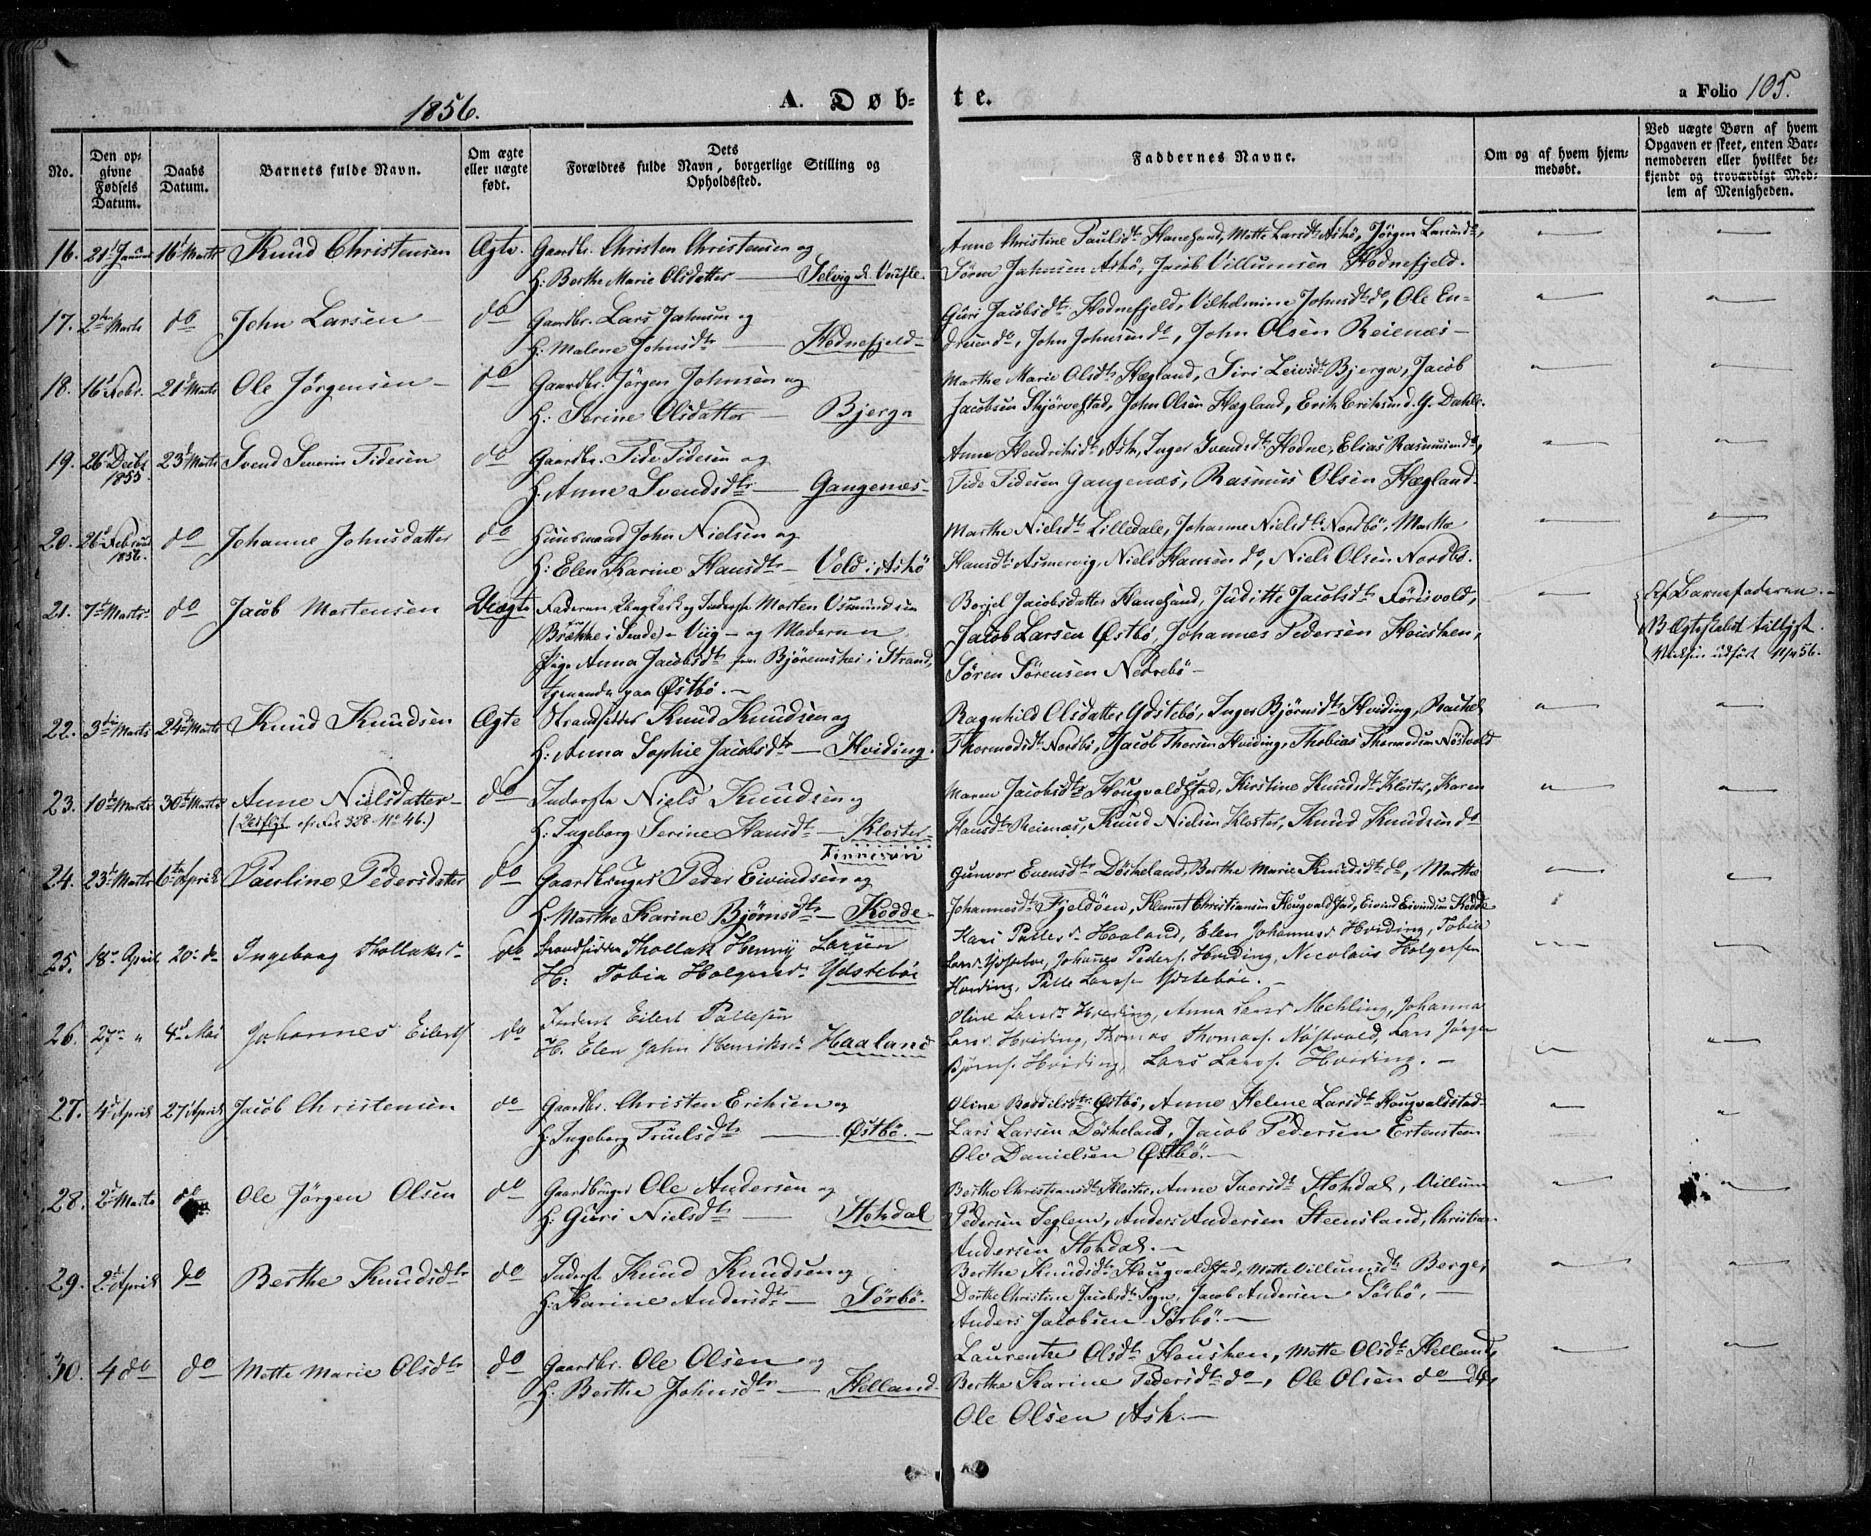 1856.
A. Døb-
te.
a Folio 105.
No.
Den op-
givne
Fødsels
Datum.
Daabs
Datum.
Barnets fulde Navn.
Om ægte
eller uægte
født.
Dets
Forældres fulde Navn, borgerlige Stilling og
Opholdssted.
Faddernes Navne.
Om og af hvem hjem-
medøbt.
Ved uægte Børn af hvem
Opgaven er skeet, enten Bar-
nemoderen eller hvilket be-
kjendt og troværdigt Med-
lem af Menigheden.
16. 21 Januar 16 Marts Knud Christensen Ægte. Gaardbr. Christen Christensen og
H: Berthe Marie Olsdatter — Selvig
Anne Christine Paulsdtr Hanehand, Mette Larsdtr Askø, Jørgen
Sören Jahnsen Askö, Jacob Villumsen Hodnefjeld.
17. 2 Marts do John Larsen — do Gaardbr. Lars Jahnsen og
H: Malene Johnsdtr — Hodnefjeld
Guri Jacobsdtr Hodnefjeld, Vilhelmine Johnsdtr do, Ole En-
dresen do, John Johnsen do, John Olsen Reienæs —
18. 16 Febr. 21 Marts Ole Jørgensen — do Gaardbr. Jørgen Johnsen og
H: Serine Olsdatter — Bjerga
Marthe Marie Olsdtr Hægland, Siri Leivsdtr Bjerga, Jacob
Jacobsen Skjörvestad, John Olsen Hægland, Erik Eriksen d. G. Dahle.
19. 26 Decbr 1855. 23 Marts Svend Severin Tidesen do Gaardbr. Tide Tidesen og
H: Anne Svendsdtr — Gangenæs
Anne Hendriksdtr Ask, Inger Svendsdtr Hodne, Elias Rasmussen do,
Tide Tidesen Gangenæs, Rasmus Olsen Hægland.
20. 26 Februar 1856. do Johanne Johnsdatter do Huusmand John Nielsen og
H: Elen Karine Hansdtr — Vold i Askö
Marthe Nielsdtr Lilledale, Johanne Nielsdtr Nordbö, Marthe
Hansdtr Asmervig, Niels Hansen do, Niels Olsen Nordbö.
21. 7 Marts do Jacob Mortensen Uægte Faderen, Ungkarl og Inderste Morten Osmundsen
(Brække i Sunde) — Viig — og Moderen
Pige Anna Jacobsdtr fra Björemskei i Strand,
tjenende paa Østbö. —
Borjel Jacobsdatter Hanehand, Juditte Jacobsdtr Förisvold,
Jacob Larsen Østbö, Johannes Pedersen Housken,
Sören Sörensen Nedrebö —
Af Barnefaderen. —
B. Ægteskabet tillyst.
22. 3 Marts 24 Marts Knud Knudsen Ægte Strandsidder Knud Knudsen og
H: Anna Sophie Jacobsdtr — Hviding.
Ragnhild Olsdatter Ydstebö, Inger Björnsdtr Hviding, Rachel
Thormodsdtr Nordbö, Jacob Thorsen Hviding, Thobias Thormodsen Nöstvold
23. 10 Marts 30 Marts Anne Nielsdatter — do Inderste Niels Knudsen og
(Udflyt 328 No 46.)
H: Ingeborg Serine Hansdtr — Kloster
Finnesand
Maren Jacobsdtr Hougvaldstad, Kirstine Knudsdtr Kloster, Karen
Hansdtr Reienæs, Knud Nielsen Kloster, Knud Knudsen do
24. 23 Marts 6 April Pauline Pedersdatter do Gaardbruger Peder Eivindsen og
H: Marthe Karine Björnsdtr — Rodde
Gunvor Evensdtr Döskeland, Berthe Marie Knudsdtr do, Marthe
Johannesdtr Fjeldöen, Klemet Christiansen Hougvaldstad, Eivind Eivindsen Rodde
25. 18 April 20 do Ingeborg Thollaksdr do Strandsidder Thollak Henrij Larsen
H: Tobia Holgersdr Ydsteböe
Kari Pallesdr Haaland, Elen Johannesdr Hviding, Tobia
Larsdr Ydstebø, Johannes Peders. Hviding, Nicolaus Holgersen
Hviding, Palle Larss. Ydsteböe. —
26. 27 " 4 Mai Johannes Eilerts do Inderst Eilert Pallesen
H. Elen Jahn Henriksdr Haaland
Oline Larsdr Hviding, Anna Larsdr Mechling, Johanna
Larsd Hviding, Thomas Thomass. Nöstvold, Lars Jörgen
Björns. Hviding, Lars Larss. Hviding. —
27. 4 April 27 April Jacob Christensen do Gaardbr. Christen Eriksen og
H: Ingeborg Truelsdtr — Østbö. —
Oline Boddilsdtr Østbö, Anne Helene Larsdtr Hougvaldstad
Lars Larsen Döskeland, Jacob Pedersen Ertensteen
Ole Danielsen Østbö. —
28. 2 Marts do Ole Jørgen Olsen do Gaardbruger Ole Andersen og
H: Guri Nielsdtr — Stokdal
Berthe Christiansdtr Kloster, Anne Iversdtr Stohdal, Villum
Pedersen Seglem, Anders Andersen Steensland, Christian
Andersen Stohdal. —
29. 2 April do Berthe Knudsdtr do Inderste Knud Knudsen og
H: Karine Andersdtr — Sörbö.
Berthe Knudsdtr Hougvaldstad, Mette Villumsdtr Berge,
Dorthe Christine Jacobsdtr Sogn, Jacob Andersen Sörbö, —
Anders Jacobsen Sörbö. —
30. 4 do do Mette Marie Olsdtr do Gaardbr. Ole Olsen og
H: Berthe Johnsdtr — Helland
Laurentze Olsdtr Housken, Mette Olsdtr Helland,
Berthe Karine Pedersdtr do, Ole Olsen do
Ole Olsen Ask. —